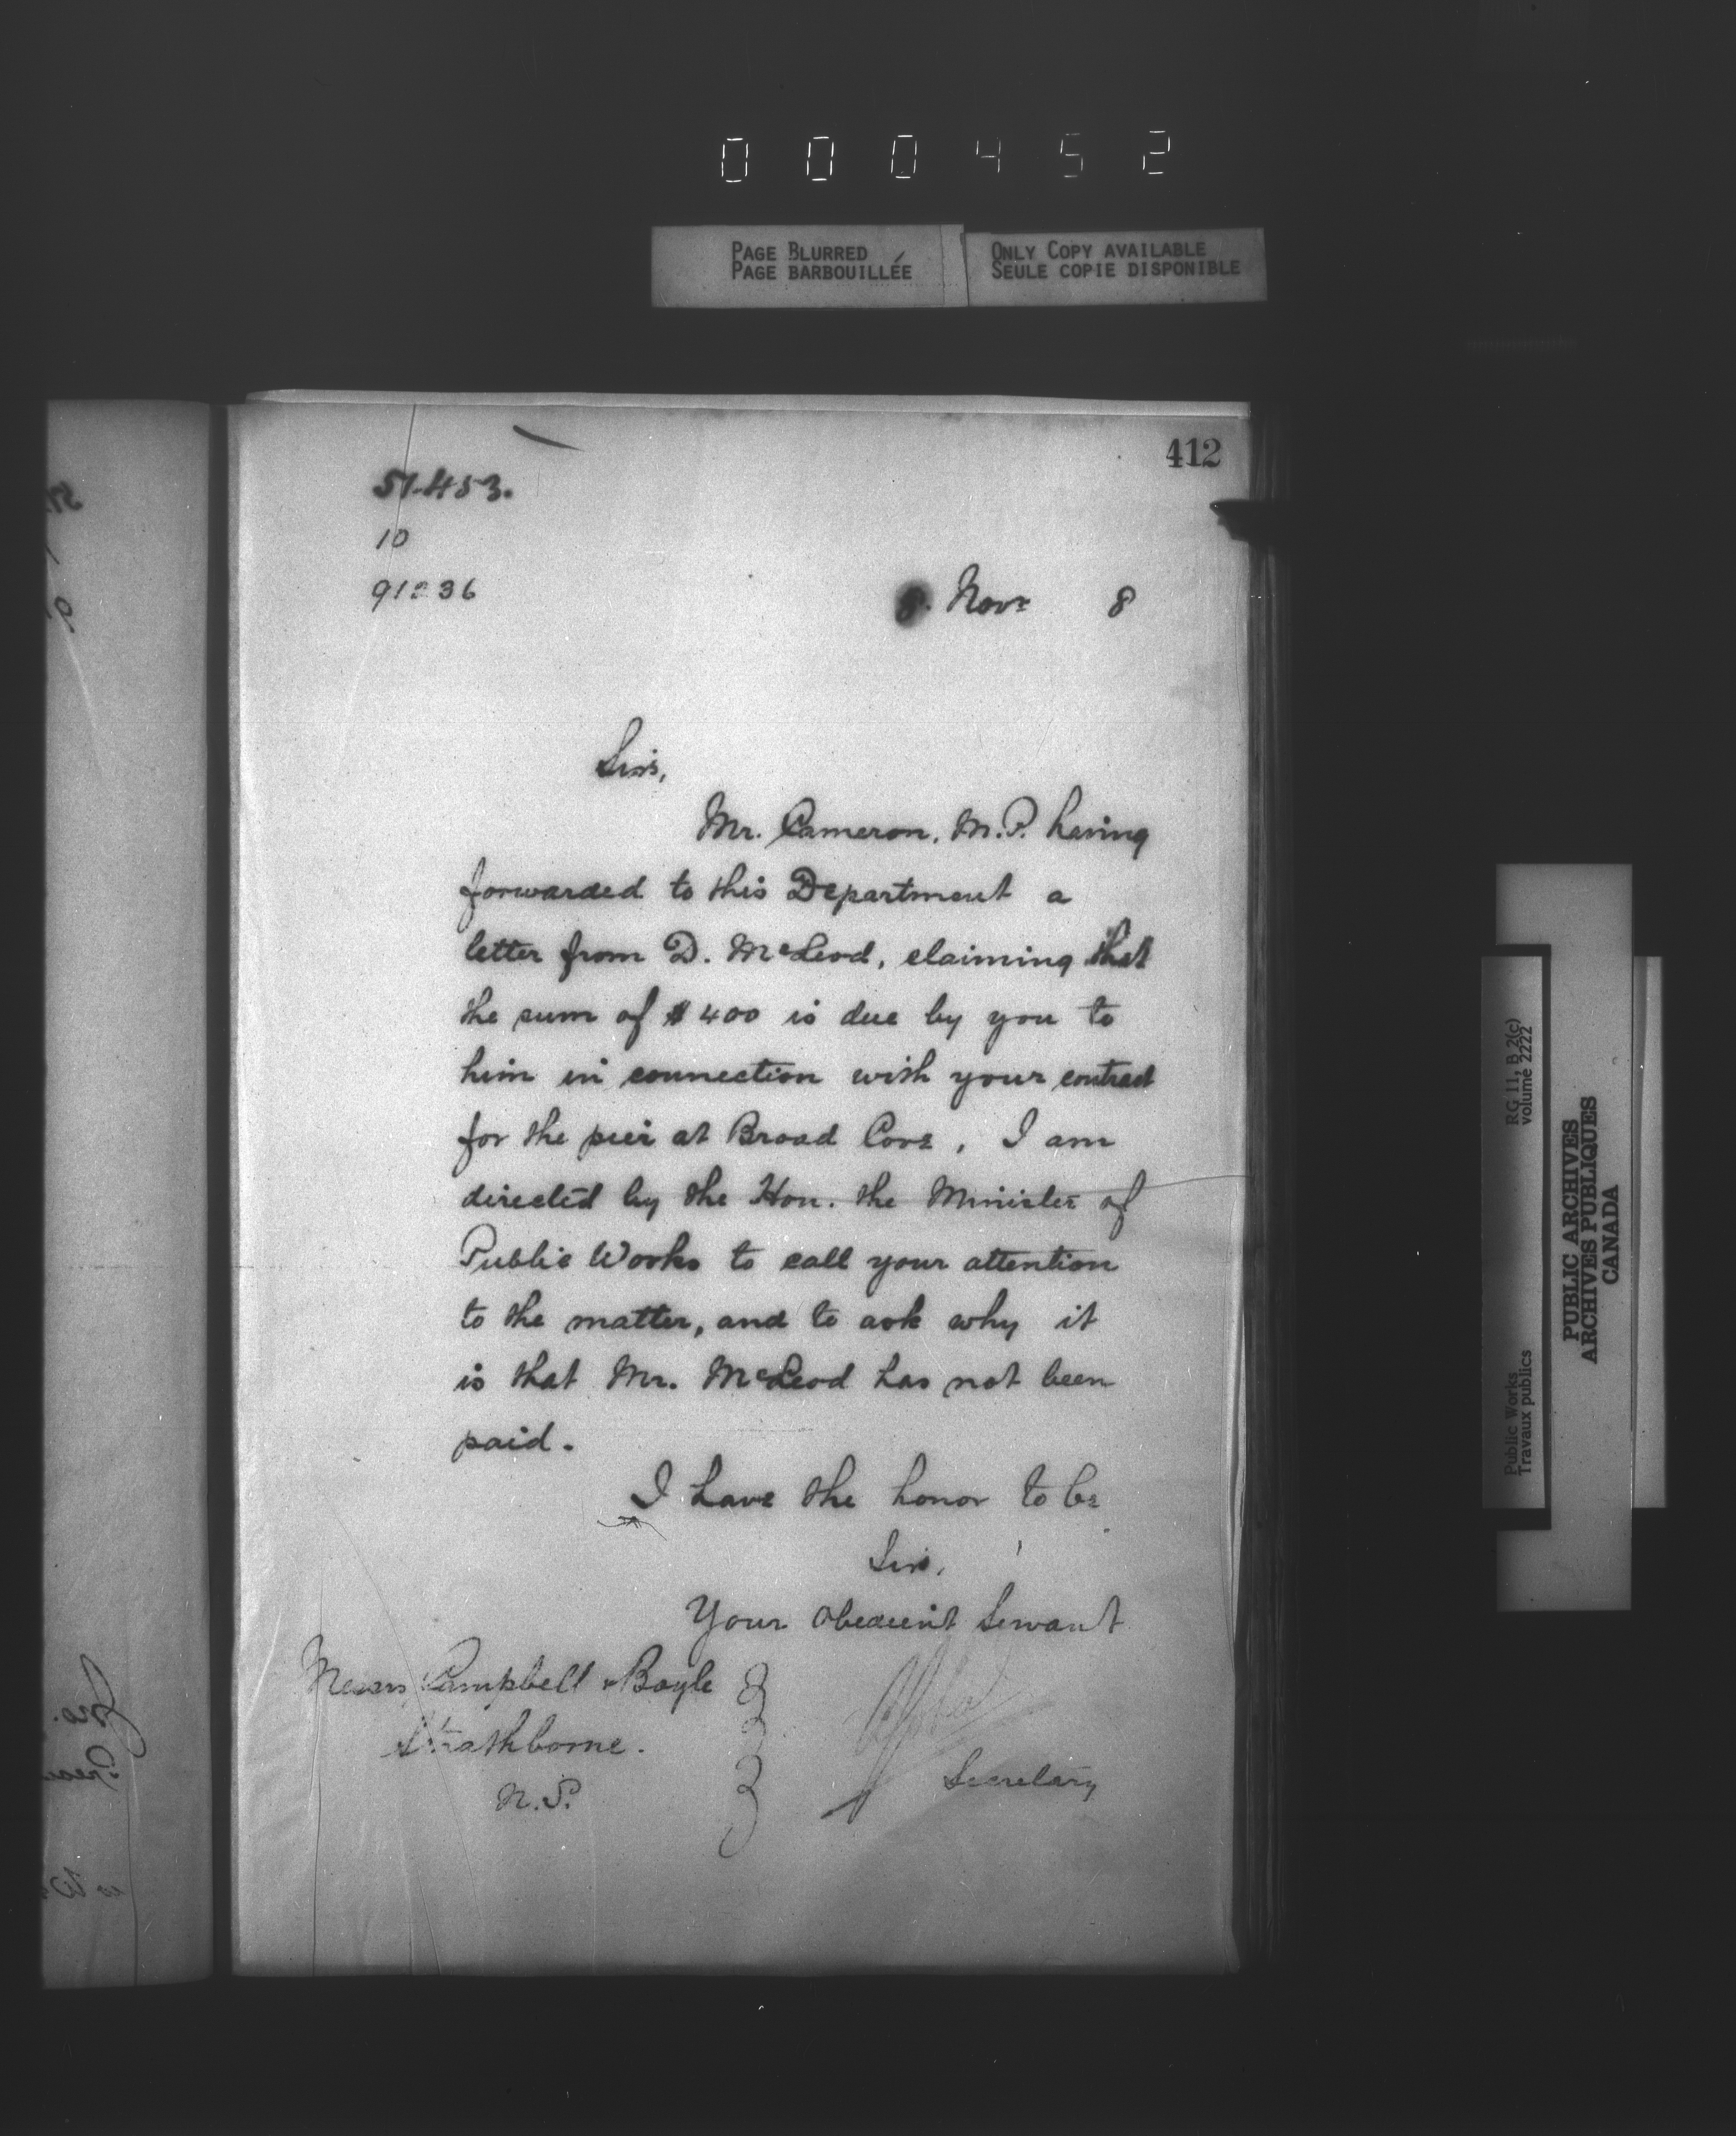 000452
PAGE BLURRED
PAGE BARBOUILLÉE
ONLY COPY AVAILABLE
SEULE COPIE DISPONIBLE
412
51453.
10
91236
8. Novr 8
Sirs,
Mr. Cameron, M.P. having
forwarded to this Department a
letter from D. McLeod, claiming that
the sum of $400 is due by you to
him in connection with your contract
for the pier at Broad Cove, I am
directed by the Hon. the Minister of
Public Works to call your attention
to the matter, and to ask why it
is that Mr. McLeod has not been
paid.
I have the honor to be
Sirs,
Your obedient Servant
Messrs Campbell & Boyle
Strathborne.
N.S.
Secretary
RG 11, B 2(c)
volume 2222
Public Works
Travaux publics
PUBLIC ARCHIVES
ARCHIVES PUBLIQUES
CANADA